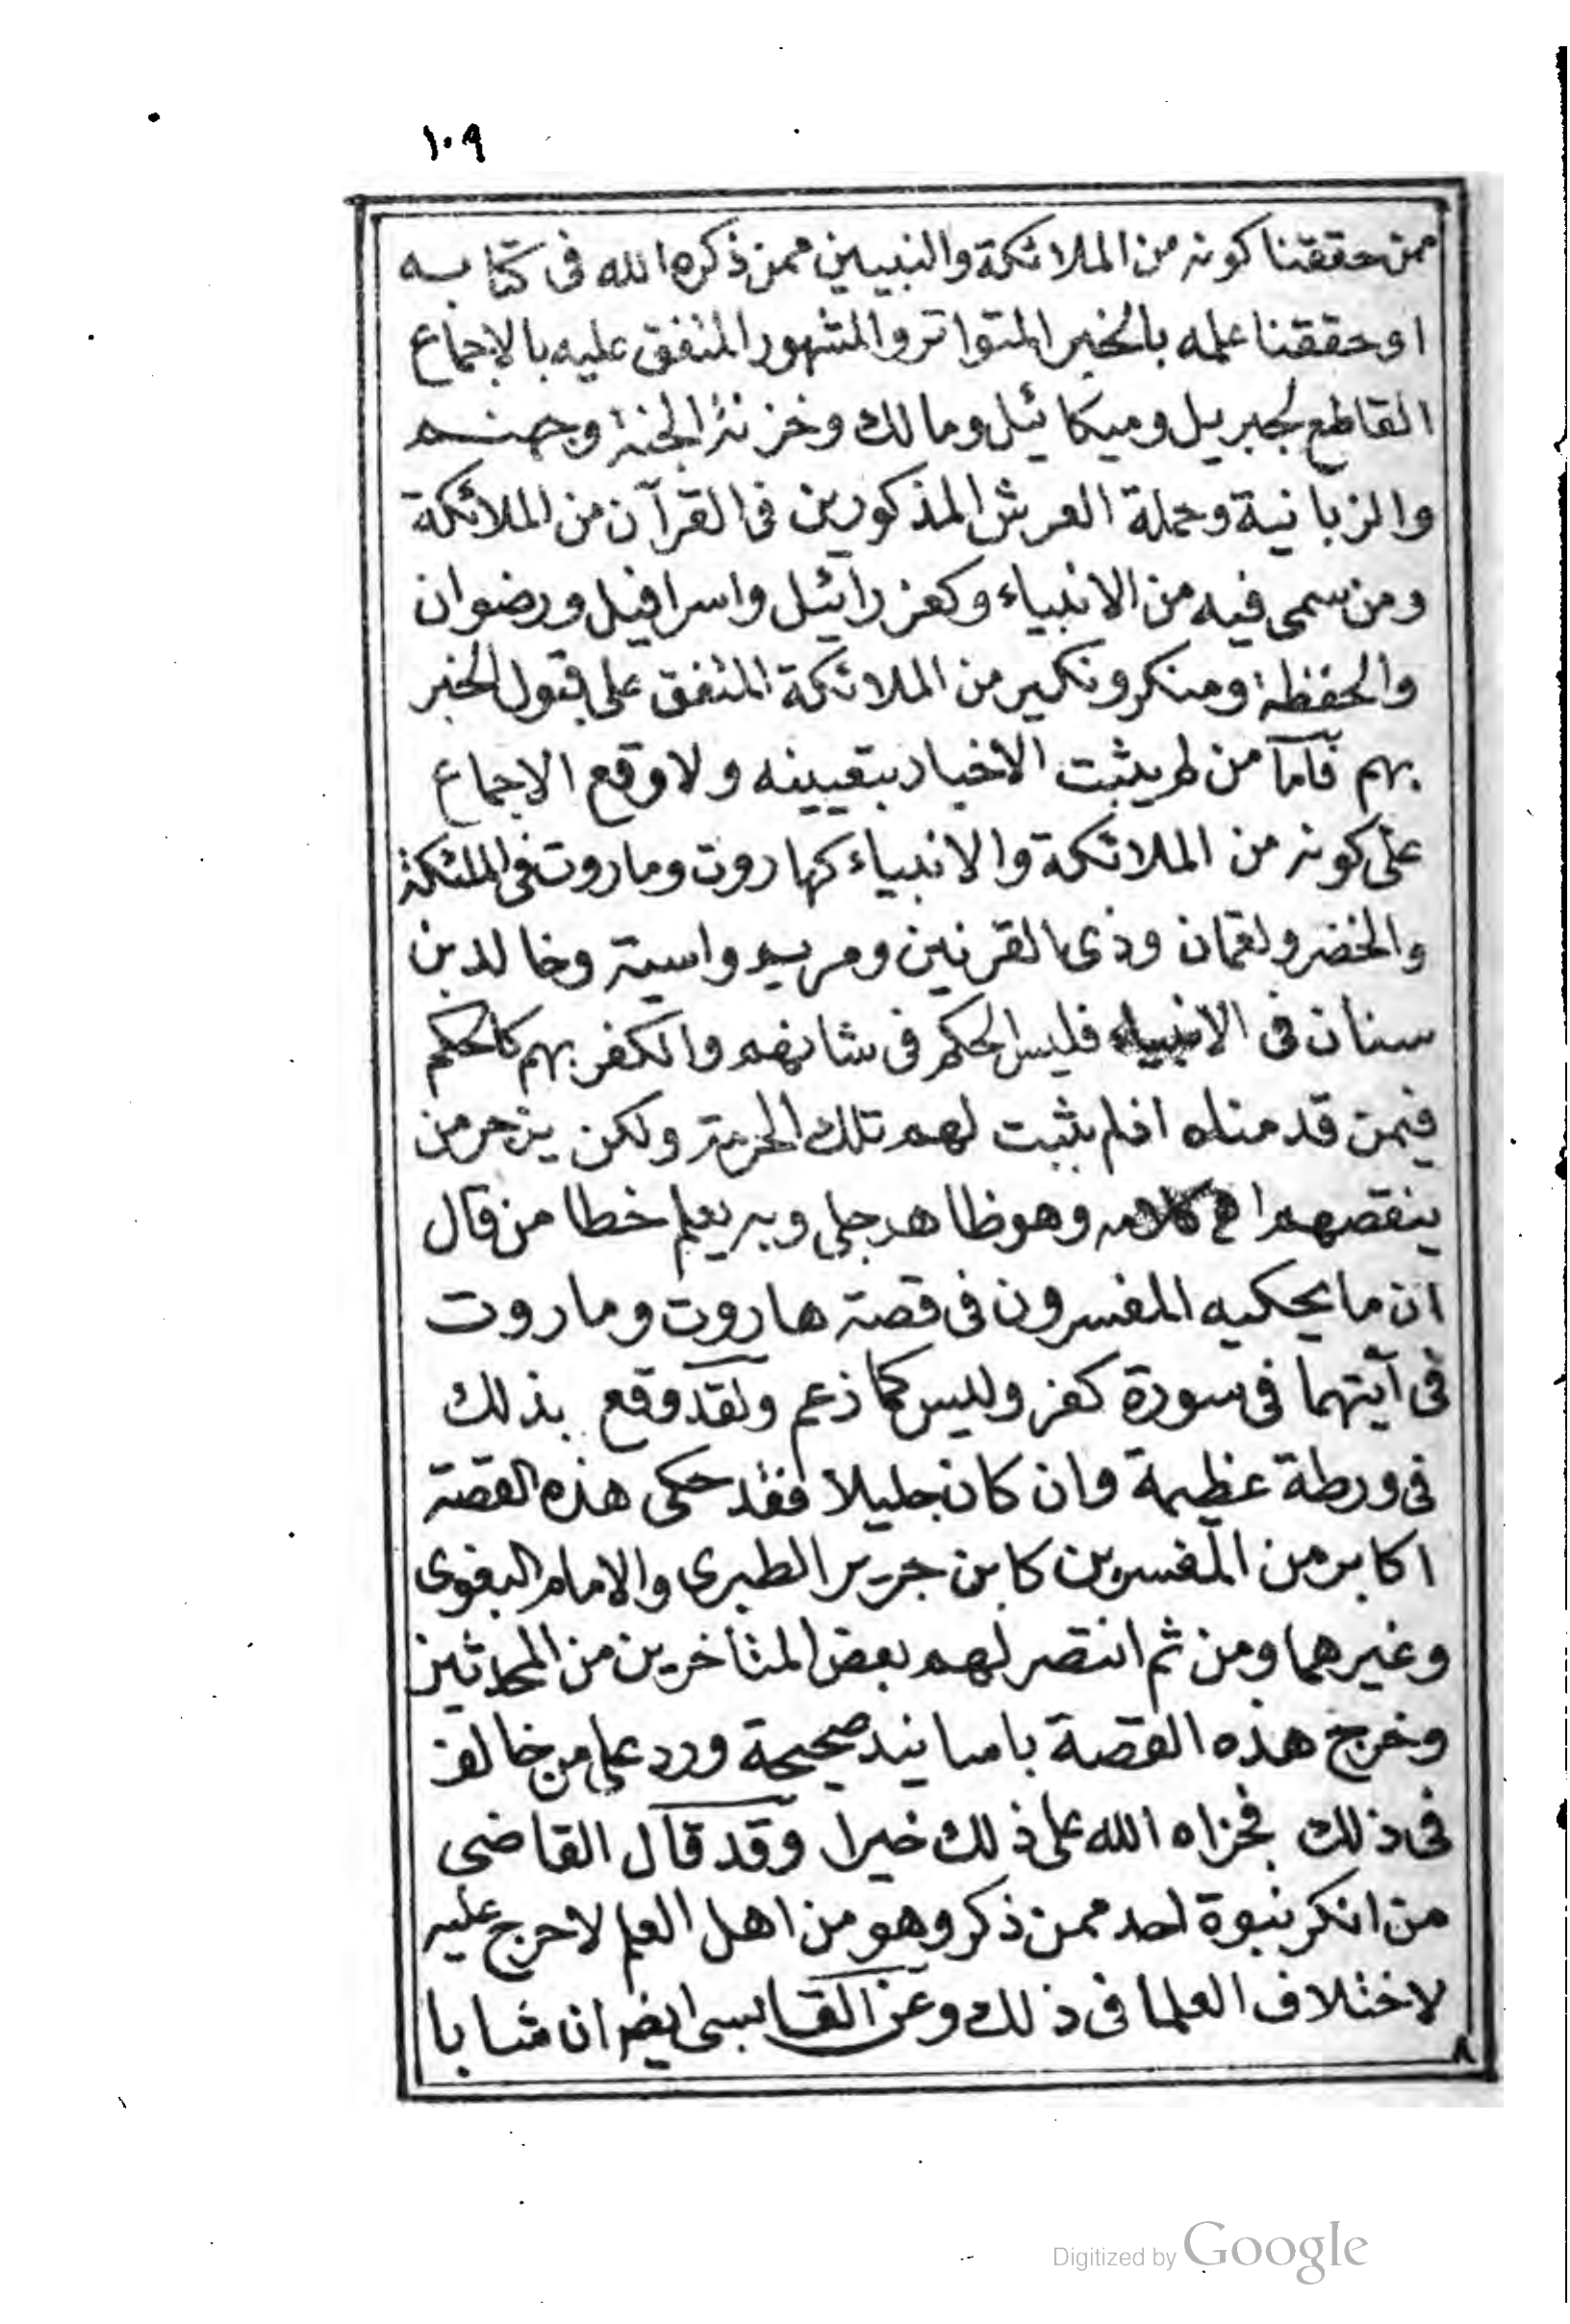 ١٠٩
ممن حققنا كونه من الملائكة والنبيين ممن ذكره الله فى كتابه
او حققنا علمه بالخبر المتواتر والمشهور المتفق عليه بالاجماع
القاطع كجبريل وميكائيل ومالك وخزنة الجنة وجهنم
والزبانية وحملة العرش المذكورين فى القرآن من الملائكة
ومن سمى فيه من الانبياء وكعزرائيل واسرافيل ورضوان
والحفظة ومنكر ونكير من الملائكة المتفق على قبول الخبر
بهم فأما من لم يثبت الاخبار بتعيينه ولا وقع الاجماع
على كونه من الملائكة والانبياء كهاروت وماروت فى الملئكة
والخضر ولقمان وذى القرنين ومريم واسية وخالد بن
سنان فى الانبياء فليس الحكم فى شانهم والكفر بهم كالحكم
فيمن قدمناه اذ لم يثبت لهم تلك الحرمة ولكن يزجر من
ينقصهم اه كلامه وهو ظاهر جلى وبه يعلم خطا من قال
ان ما يحكيه المفسرون فى قصة هاروت وماروت
فى آيتهما فى سورة كفر وليس كما زعم ولقد وقع بذلك
فى ورطة عظيمة وان كان جليلا فقد حكى هذه القصة
اكابر من المفسرين كابن جرير الطبرى والامام البغوى
وغيرهما ومن ثم انتصر لهم بعض المتأخرين من المحدثين
وخرج هذه القصة باسانيد صحيحة ورد على من خالف
فى ذلك فجزاه الله على ذلك خيرا وقد قال القاضى
من انكر نبوة احد ممن ذكر وهو من اهل العلم لا حرج عليه
لاختلاف العلما فى ذلك وعن القابسى ايضا ان شابا
٨
Digitized by Google